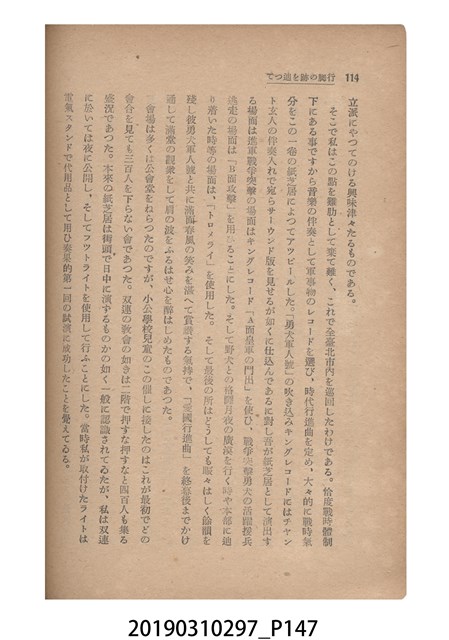 114 行脚の跡を辿つて
立派にやつてのける興味津々たるものである。
そこで私はこの點を雞肋として棄て難く、これで全臺北市内を巡回したわけである。恰度戰時體制
下にある事ですから音樂の伴奏として軍事物のレコードを選び、時代行進曲を定め、大々的に戰時氣
分をこの一卷の紙芝居によつてアツピールした。「勇犬軍人號」の吹き込みキングレコードにはチヤン
ト玄人の伴奏入れで宛らサーウンド版を見せるが如くに仕込んであるに對し音が紙芝居として演出す
る場面は進軍戰爭突擊の場面はキングレコード「A面皇軍の門出」を使ひ、戰爭突擊勇犬の活躍援兵
逃走の場面は「B面攻擊」を用ひることにした。そして野犬との格鬪月夜の廣漠を行く時や本部に辿
り着いた時等の場面は、「トロメライ」を使用した。そして最後の所はどうしても賑々はしく餘韻を
殘し彼勇犬軍人號と共に滿面春風の笑みを湛へて賞讚する氣持で、「愛國行進曲」を終幕後までかけ
通して滿堂の觀衆をして肩の波をふるはせ心を醉はしめたものであつた。
會場は多くは公會堂をねらつたのですが、小公學校兒童のこの催しに接したのはこれが最初でどの
會合を見ても三百人を下らない會であつた。双連の教會の如きは二階で押すな押すなと四百人も集る
盛況であつた。本來の紙芝居は街頭で日中に演するものかの如く一般に認識されてゐたが、私は双連
に於いては夜に公開し、そしてフツトライトを使用して行ふことにした。當時私が取付けたライトは
電氣スタンドで代用品として用ひ奏果的第一回の試演に成功したことを覺えてゐる。
20190310297_P147